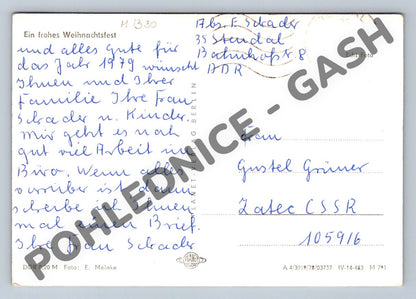 M B30
Ein frohes Weihnachtsfest
und alles Gute für
das Jahr 1979 wünscht
Ihnen und Ihrer
Familie Ihre Frau
Schader u. Kinder.
Mir geht es noch
gut viel Arbeit im
Büro. Wenn alles
vorrüber ist dann
schreibe ich Ihnen
mal einen Brief.
Ihre Frau Schader
Abs. E Schader
35 Stendal
Bahnhofstr 8
DDR
Frau
Gustel Grüner
Zatec CSSR
105916
BERLIN
DDR 0,20 M Foto: E. Meinke
IV-14-483 M 791
POHLEDNICE - GASH